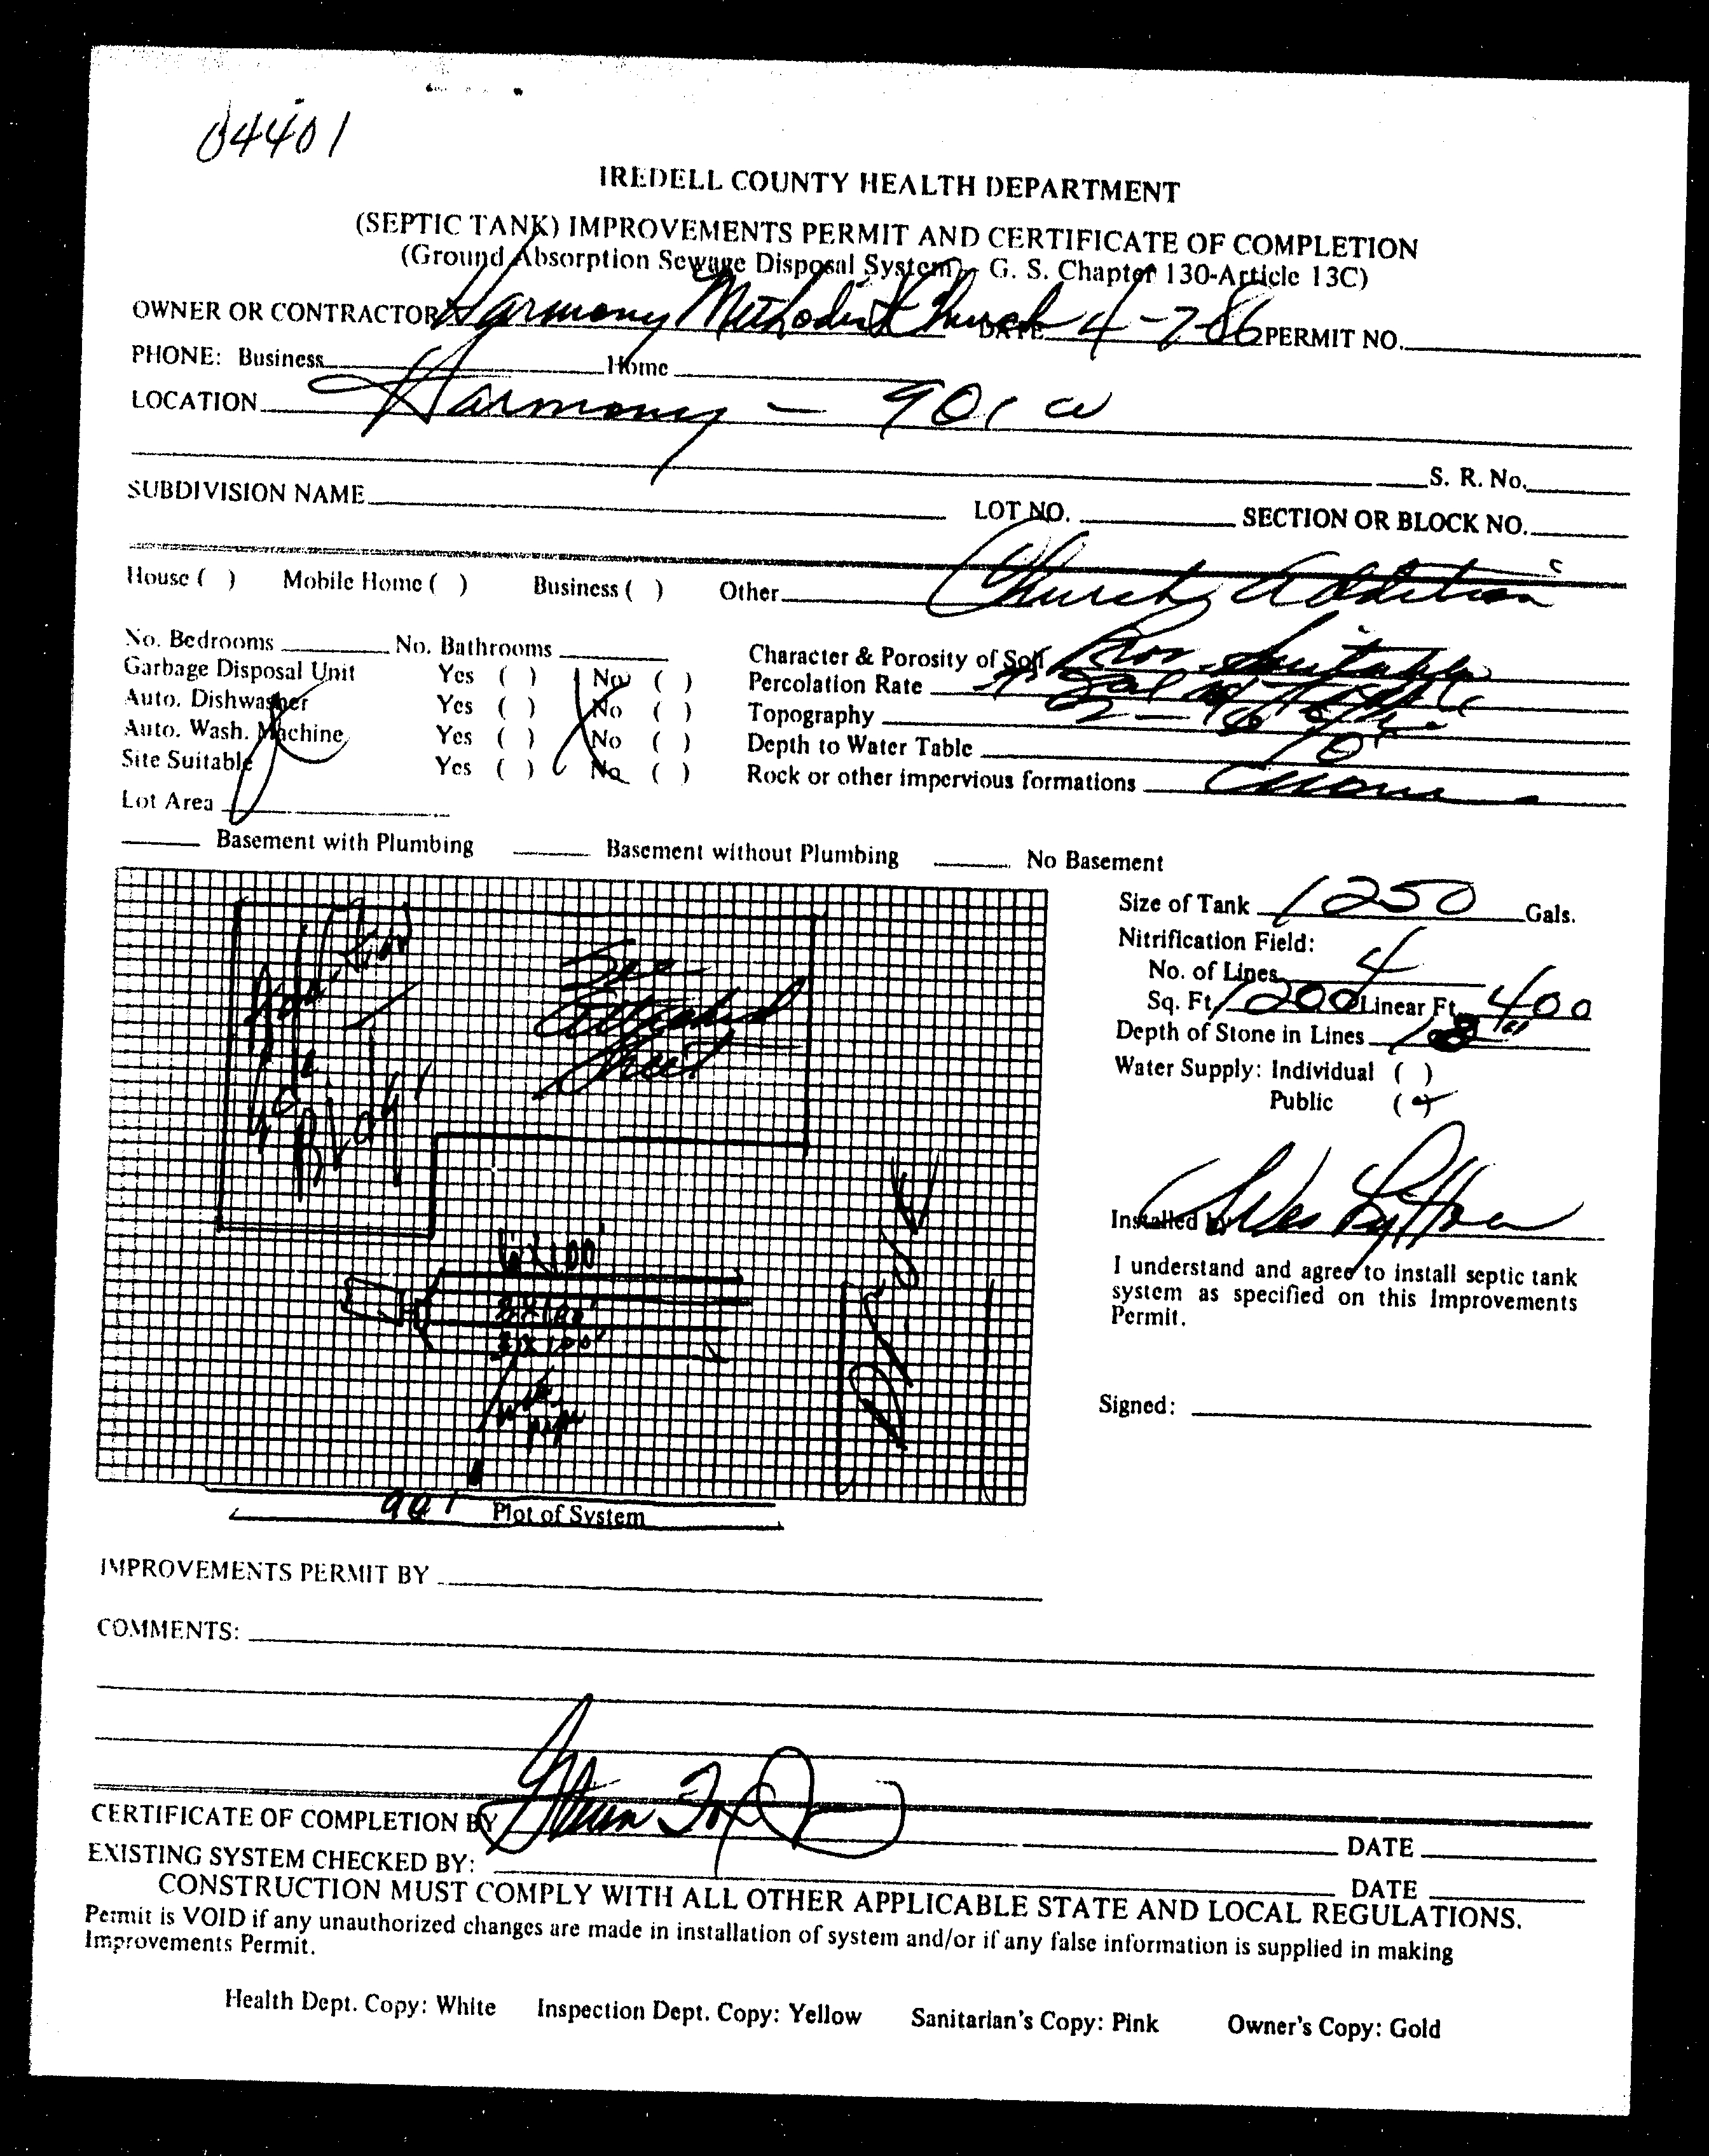 04401
IREDELL COUNTY HEALTH DEPARTMENT
(SEPTIC TANK) IMPROVEMENTS PERMIT AND CERTIFICATE OF COMPLETION
(Ground Absorption Sewage Disposal System) - G. S. Chapter 130-Article 13C)
OWNER OR CONTRACTOR Harmony Methodist Church DATE 4-7-86 PERMIT NO.
PHONE: Business Home
LOCATION Harmony - 901 W
S. R. No.
SUBDIVISION NAME LOT NO. SECTION OR BLOCK NO.
House ( ) Mobile Home ( ) Business ( ) Other Church Addition
No. Bedrooms No. Bathrooms Character & Porosity of Soil Prov. Suitable
Garbage Disposal Unit Yes ( ) No ( ) Percolation Rate
Auto. Dishwasher Yes ( ) No ( ) Topography
Auto. Wash. Machine Yes ( ) No ( ) Depth to Water Table
Site Suitable Yes ( ) No ( ) Rock or other impervious formations None
Lot Area
Basement with Plumbing Basement without Plumbing No Basement
Size of Tank 1250 Gals.
Nitrification Field:
No. of Lines 4
Sq. Ft. 1200 Linear Ft. 400
Depth of Stone in Lines 18"
Water Supply: Individual ( )
Public ( )
Installed by Wes
I understand and agree to install septic tank
system as specified on this Improvements
Permit.
Signed:
Addition
Bldg
See
Attached
Sheet
3X100'
3X100'
pipe
Drive
901 Plot of System
IMPROVEMENTS PERMIT BY
COMMENTS:
CERTIFICATE OF COMPLETION BY DATE
EXISTING SYSTEM CHECKED BY: DATE
CONSTRUCTION MUST COMPLY WITH ALL OTHER APPLICABLE STATE AND LOCAL REGULATIONS.
Permit is VOID if any unauthorized changes are made in installation of system and/or if any false information is supplied in making
Improvements Permit.
Health Dept. Copy: White Inspection Dept. Copy: Yellow Sanitarian's Copy: Pink Owner's Copy: Gold